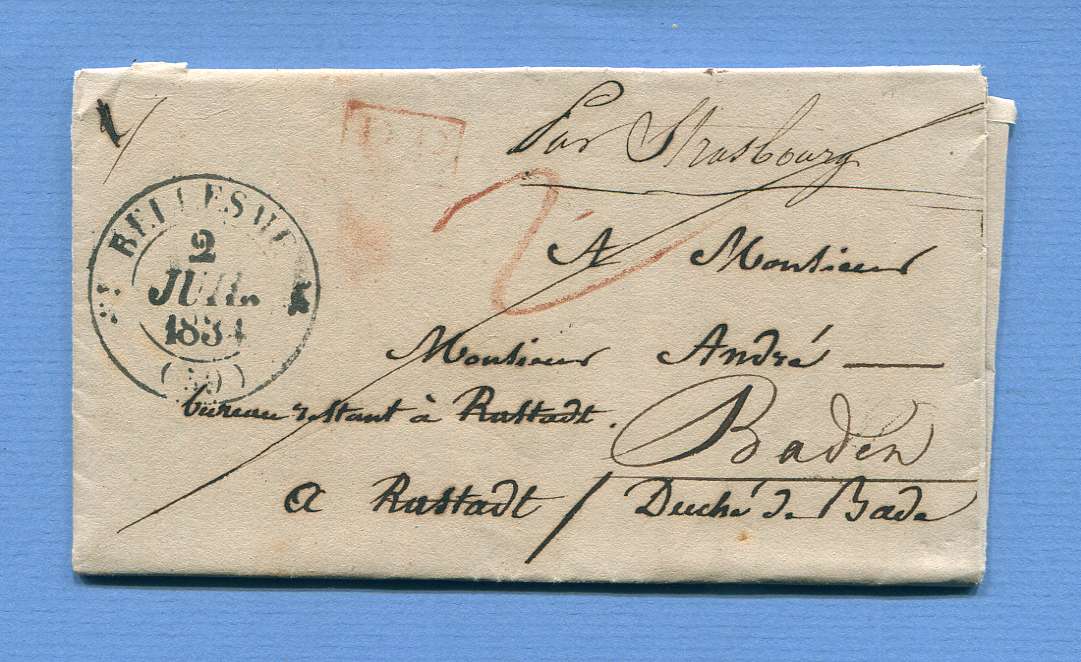 Par Strasbourg
P.P.
BELLESME
2
JUIL.
1834
2
A Monsieur
Monsieur André
bureau restant à Rastadt.
Baden
a Rastadt / Duché de Bade